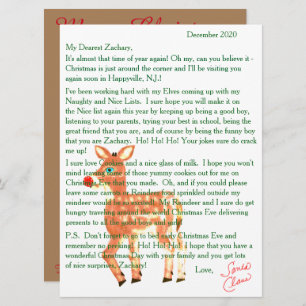 December 2020
My Dearest Zachary,
It's almost that time of year again! Oh my, can you believe it -
Christmas is just around the corner and I'll be visiting you
again soon in Happyville, N.J.!
I've been working hard with my Elves coming up with my
Naughty and Nice Lists. I sure hope you will make it on
the Nice list again this year by keeping up being a good boy,
listening to your parents, trying your best in school, being the
great friend that you are, and of course by being the funny boy
that you are Zachary. Ho! Ho! Ho! Your jokes sure do crack
me up!
I sure love Cookies and a nice glass of milk. I hope you won't
mind leaving for me some of those yummy cookies out for me on
Christmas you made. Oh, and if you could please
leave some carrots or Reindeer food sprinkled outside my
reindeer would be so My Reindeer and I sure do get
hungry traveling around the world Christmas Eve delivering
presents to all the good boys and girls.
P.S. Don't forget to go to bed early Christmas Eve and
remember no peeking! Ho! Ho! Ho! I hope that you have a
wonderful Christmas Day with your family and you get lots
of nice surprises, Zachary!
Love,
Santa
Claus